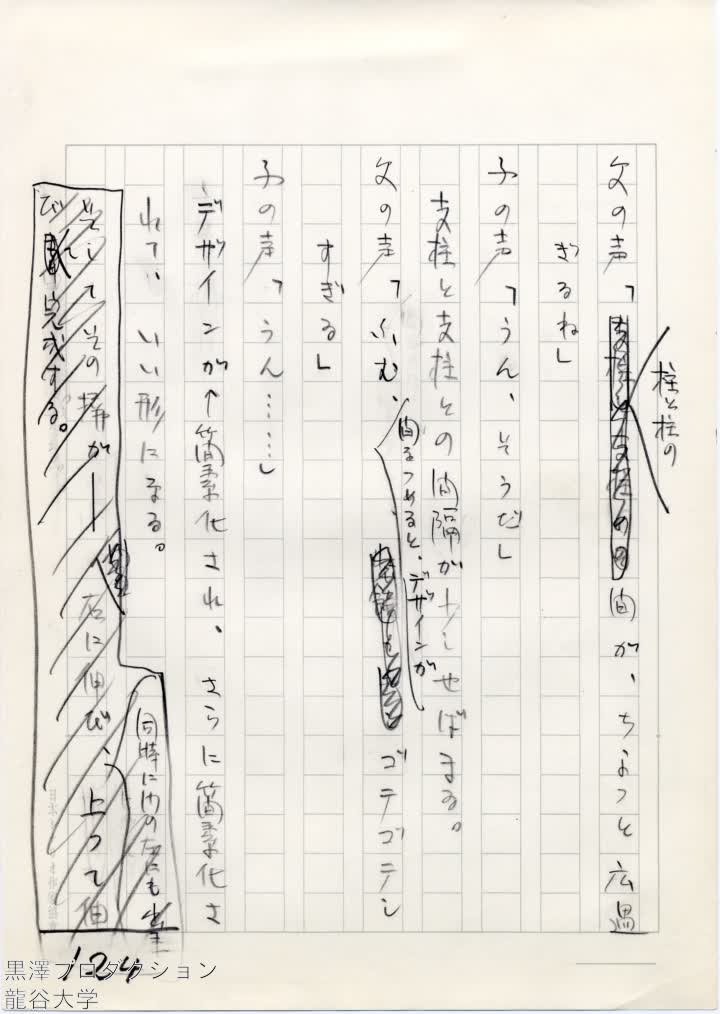 柱と柱の
父の声「支柱と支柱の間が、ちょっと広過
ぎるね」
子の声「うん、そうだ」
支柱と支柱との間隔が少しせばまる。
間をつめると、デザインが
父の声「ふむ、ゴテゴテし
すぎる」
子の声「うん……」
デザインが簡素化され、さらに簡素化さ
れて、いい形になる。
同時に門の左にも
そしてその塀が――右に伸び、上って伸
び、完成する。
124
黒澤プロダクション
龍谷大学